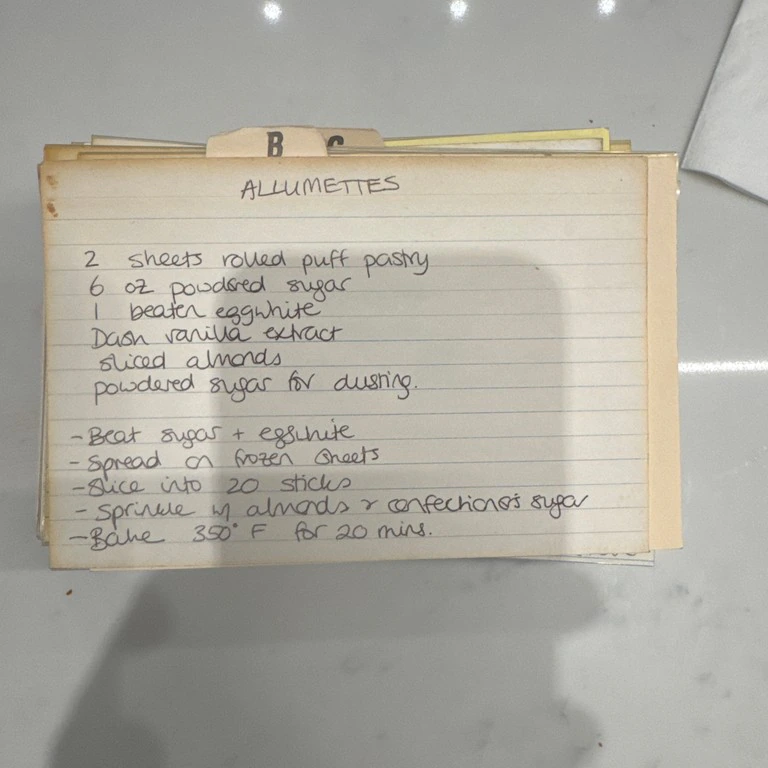 B C
ALLUMETTES
2 sheets rolled puff pastry
6 oz powdered sugar
1 beaten eggwhite
Dash vanilla extract
sliced almonds
powdered sugar for dusting.
- Beat sugar + eggwhite
- Spread on frozen sheets
- Slice into 20 sticks
- Sprinkle w/ almonds & confectioner's sugar
- Bake 350° F for 20 mins.